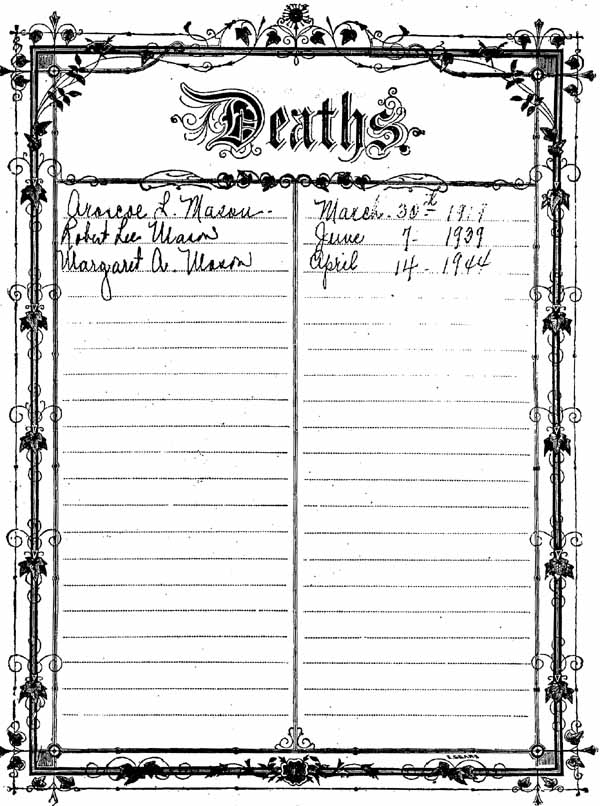 Deaths.
Aroscoe L. Mason March 30th 1919
Robert Lee Mason June 7 - 1939
Margaret A. Mason April 14 - 1944
E. SEARS